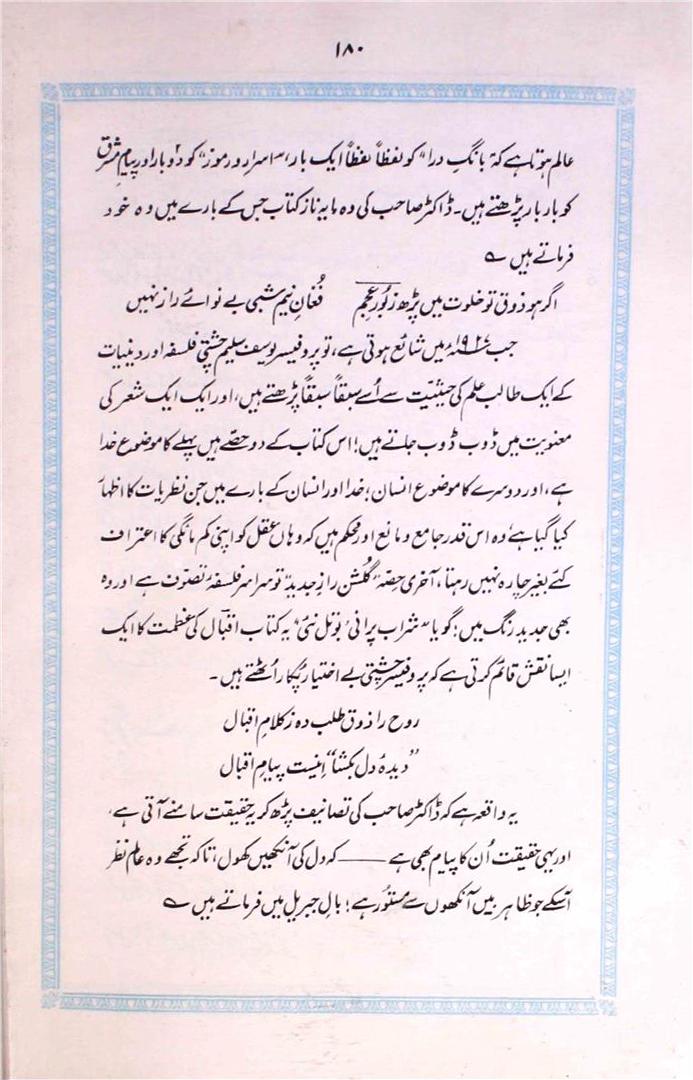 ۱۸۰
عالم ہوتا ہے کہ "بانگِ درا" کو لفظاً لفظاً ایک بار، "اسرار و رموز" کو دو بار اور پیامِ مشرق
کو بار بار پڑھتے ہیں۔ ڈاکٹر صاحب کی وہ مایہ ناز کتاب جس کے بارے میں وہ خود
فرماتے ہیں ؎
اگر ہو ذوق تو خلوت میں پڑھ زبورِ عجم فُغانِ نیم شبی بے نوائے راز نہیں
جب ۱۹۲۷ء میں شائع ہوتی ہے، تو پروفیسر یوسف سلیم چشتی فلسفہ اور دینیات
کے ایک طالب علم کی حیثیت سے اُسے سبقاً سبقاً پڑھتے ہیں، اور ایک ایک شعر کی
معنویت میں ڈوب ڈوب جاتے ہیں! اس کتاب کے دو حصّے ہیں پہلے کا موضوع خدا
ہے، اور دوسرے کا موضوع انسان؛ خدا اور انسان کے بارے میں جن نظریات کا اظہار
کیا گیا ہے وہ اس قدر جامع و مانع اور محکم ہیں کہ وہاں عقل کو اپنی کم مائگی کا اعتراف
کئے بغیر چارہ نہیں رہتا، آخری حصّہ "گلشن رازِ جدید" تو سراسر فلسفۂ تصوّف ہے اور وہ
بھی جدید رنگ میں؛ گویا "شراب پرانی، بوتل نئی" یہ کتاب اقبال کی عظمت کا ایک
ایسا نقش قائم کرتی ہے کہ پروفیسر چشتی بے اختیار پُکار اُٹھتے ہیں۔
روح را ذوق طلب دہ ز کلامِ اقبال
"دیدۂ دل بکشا" اینست پیامِ اقبال
یہ واقعہ ہے کہ ڈاکٹر صاحب کی تصانیف پڑھ کر یہ حقیقت سامنے آتی ہے،
اور یہی حقیقت اُن کا پیام بھی ہے —— کہ دل کی آنکھیں کھول، تاکہ تجھے وہ عالم نظر
آسکے جو ظاہر بیں آنکھوں سے مستور ہے؛ بالِ جبریل میں فرماتے ہیں ؎